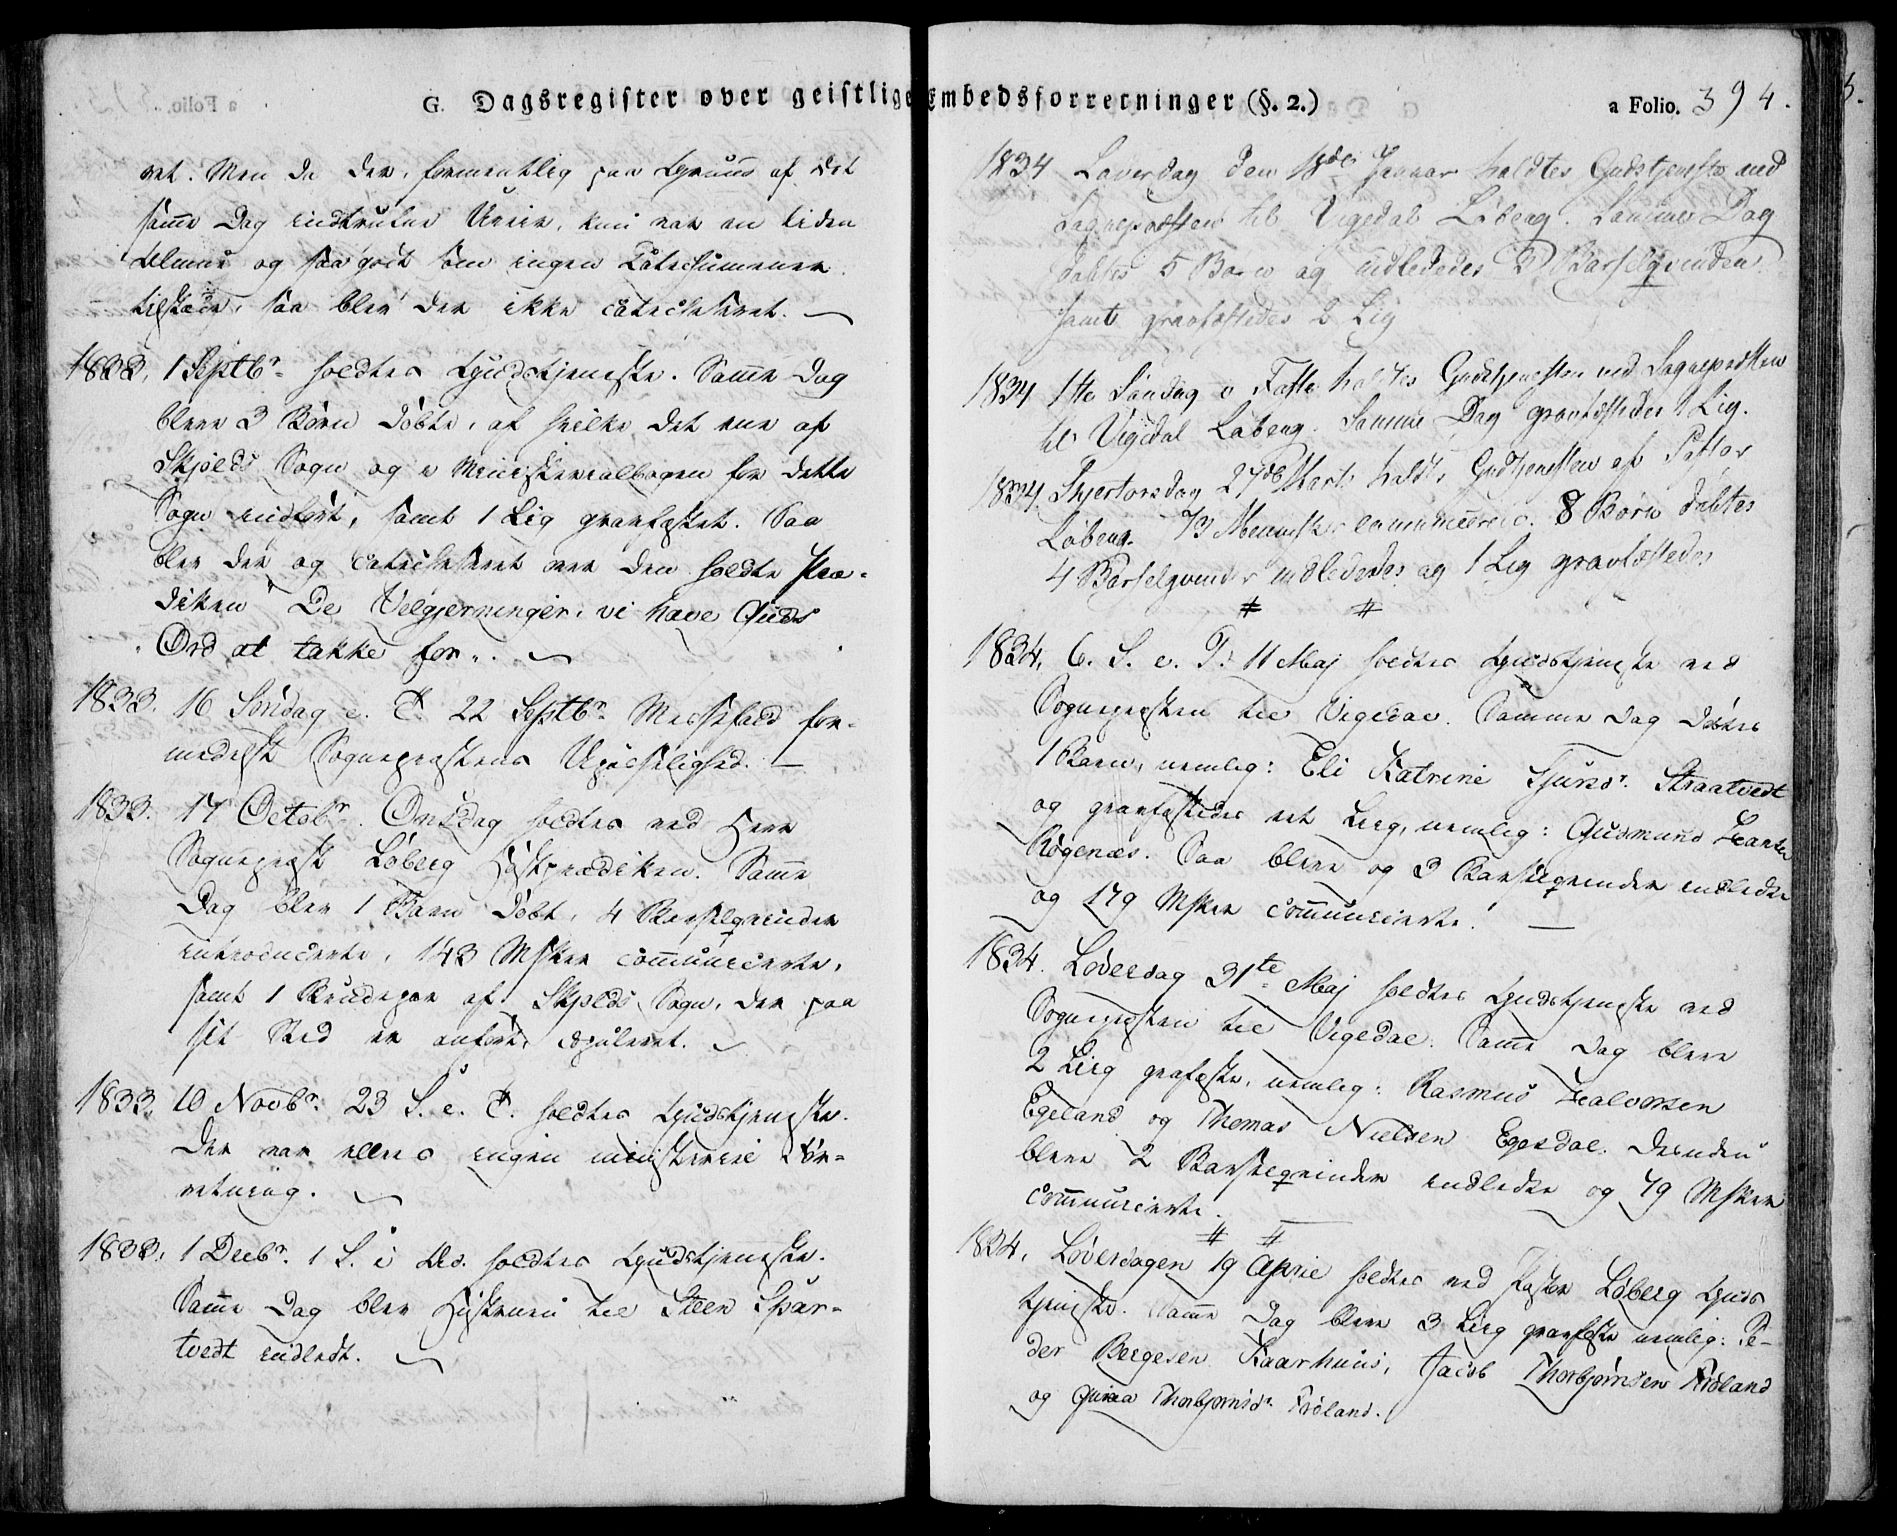 G. Dagsregister over geistlige Embedsforretninger (§. 2.)
a Folio. 394.
vet. Men da der, formentlig paa Grund af det
samme Dag indtrufne Uveir, kun var en liden
Almue og saa godt som ingen Catechumener
tilstæde, saa blev der ikke catechiseret.
1833. 1 Septbr. holdtes Gudstjeneste. Samme Dag
bleve 3 Børn døbte, af hvilke det ene af
Skjolds Sogn og i Ministerialbogen for dette
Sogn indført, samt 1 Lig gravfæstet. Saa
blev der og catechiseret over den holdte Præ-
diken "De Velgjerninger, vi have Guds
Ord at takke for".
1833. 16 Søndag e. T. 22 Septbr. Messefald for-
medelst Sognepræstens Upasselighed.
1833. 17 Octobr. Onsdag holdtes ved Herr
Sognepræst Løberg Høstprædiken. Samme
Dag blev 1 Barn døbt, 4 Barselqvinder
introducerte, 143 Msker communicerte,
samt 1 Brudepar af Skjolds Sogn, der paa
sit Sted er anført, copuleret.
1833. 10 Novbr. 23 S. e. T. holdtes Gudstjeneste.
Der var ellers ingen ministeriel For-
retning.
1833. 1 Decbr. 1 S. i Adv. holdtes Gudstjeneste.
Samme Dag blev Hustruen til Steen Spar-
tvedt indledt.
1834 Løverdag den 18de Januar holdtes Gudstjeneste ved
Sognepræsten til Vigedal Løberg. Samme Dag
døbtes 5 Børn og indlededes 2 Barselqvinder
samt gravfæstedes 2 Lig
1834 1te Søndag i Faste holdtes Gudstjenesten ved Sognepræsten
til Vigedal Løberg. Samme Dag gravfæstedes 1 Lig.
1834. Skjertorsdag 27de Marts holdtes Gudstjenesten af Pastor
Løberg. 73 Mennesker communicerede. 8 Børn døbtes
4 Barselqvinder indlededes og 1 Lig gravfæstedes
# #
1834. 6. S. e. P. 11 Maj holdtes Gudstjeneste ved
Sognepræsten til Vigedal. Samme Dag døbtes
1 Barn, nemlig: Eli Katrine Straatvedt
og gravfæstedes et Liig, nemlig: Gudmund Hansen
Røgenæs. Saa bleve og 3 Barselqvinder indledte
og 179 Msker communicerte.
1834. Løverdag 31te Maj holdtes Gudstjeneste ved
Sognepræsten til Vigedal. Samme Dag bleve
2 Liig grafæste, nemlig: Rasmus Halvorsen
Egeland og Thomas Nielsen Egesdal. Desuden
bleve 2 Barselqvinder indledte og 79 Msker
communicerte.
# #
1834. Løverdagen 19 April holdtes ved Pastor Løberg Guds
tjeneste. Samme Dag bleve 3 Liig gravfæste nemlig: Pe-
der Bergesen Kaarhuus, Jacob Thorbjørnsen Frøland
og Thorbjørnsdr. Frøland.